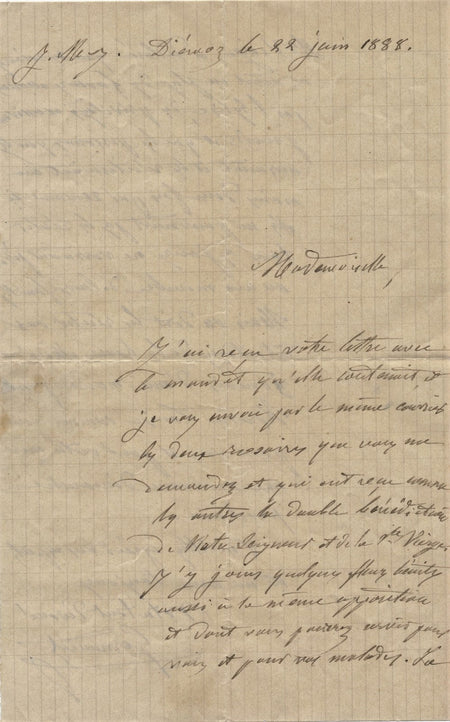 J. M. J. Diémoz le 22 juin 1888.
Mademoiselle,
J'ai reçu votre lettre avec
le mandat qu'elle contenait et
je vous envoie par le même courrier
les deux rosaires que vous me
demandez et qui ont reçu comme
les autres la double bénédiction
de Notre Seigneur et de la Ste Vierge.
J'y joins quelques fleurs bénites
aussi à la même apparition
et dont vous pourrez servir pour
vous et pour vos malades. La